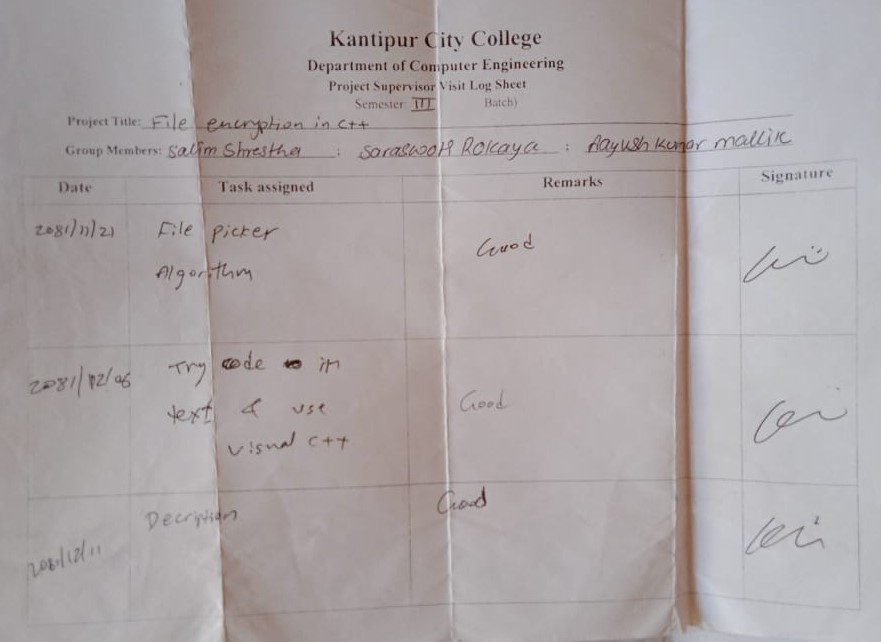 Kantipur City College
Department of Computer Engineering
Project Supervisor Visit Log Sheet
Semester III Batch)
Project Title: File encryption in C++
Group Members: Salim Shrestha : Saraswoti Rokaya : Aayush Kumar mallik
Date Task assigned Remarks Signature
2081/11/21 File picker Good
Algorithm
2081/12/06 Try code in
text & use Good
visual C++
Decription Good
2081/12/11